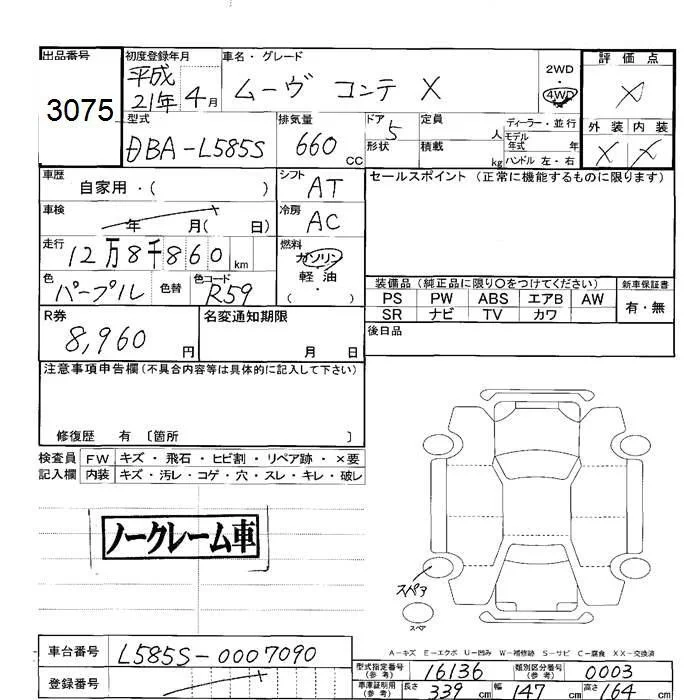 出品番号
3075
初度登録年月
平成
21年 4月
車名・グレード
ムーヴ コンテ X
2WD
・
4WD
評価点
X
外装 内装
X X
型式
DBA-L585S
排気量
660 cc
ドア 5
形状
定員 人
積載 kg
ディーラー・並行
モデル
年式 年
ハンドル 左・右
車歴
自家用・( )
シフト
AT
セールスポイント (正常に機能するものに限ります)
車検
年 月( 日)
冷房
AC
走行
12万8千860 km
燃料
ガソリン
・
軽油
( )
色
パープル
色替
色コード
R59
装備品 (純正品に限り〇をつけてください)
新車保証書
PS PW ABS エアB AW
有・無
SR ナビ TV カワ
R券
8,960 円
名変通知期限
月 日
後日品
注意事項申告欄(不具合内容等は具体的に記入して下さい)
修復歴 有 〔箇所 〕
検査員 FW キズ・飛石・ヒビ割・リペア跡・×要
記入欄 内装 キズ・汚レ・コゲ・穴・スレ・キレ・破レ
ノークレーム車
スペア
スペア
A－キズ E－エクボ U－凹み W－補修跡 S－サビ C－腐食 XX－交換済
車台番号 L585S-0007090
登録番号
型式指定番号
(参考)
16136
類別区分番号
(参考)
0003
車庫証明用
(参考)
長さ 339 cm 幅 147 cm 高さ 164 cm